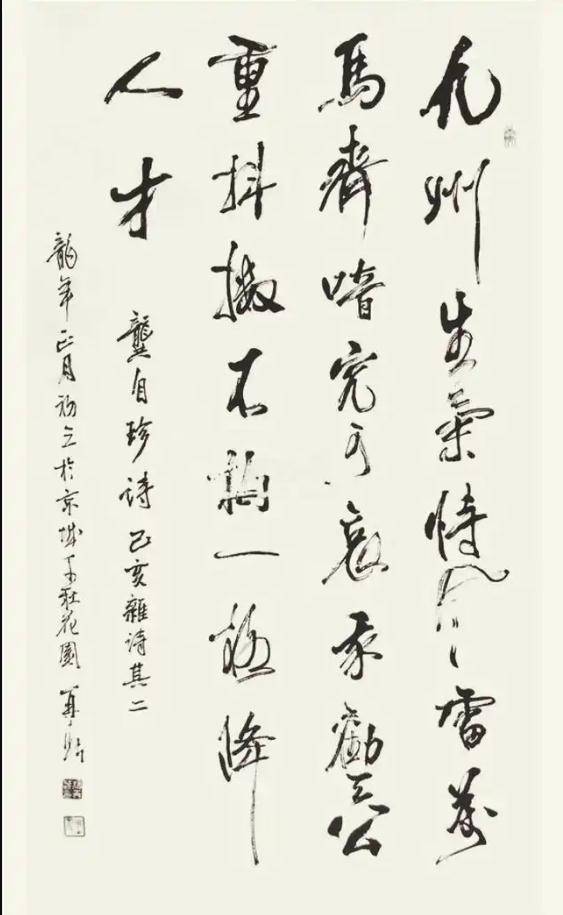 九州生氣恃風雷萬
馬齊喑究可哀我勸天公
重抖擻不拘一格降
人才
龔自珍詩己亥雜詩其二
龍年正月初於京城花園